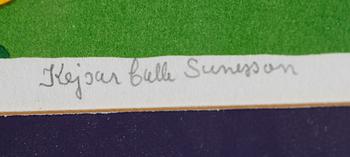 Kejsar Culle Sunesson